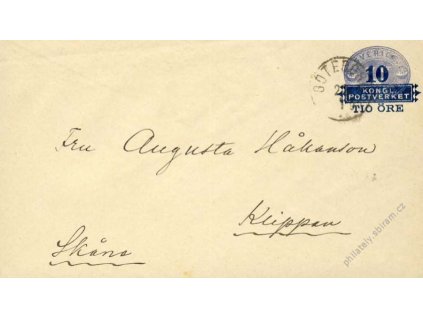 SVERIGE
10
KONGL.
POSTVERKET
TIO ÖRE
GÖTEB
Fru Augusta Håkanson
Klippan
Skåne
philately.sbiram.cz